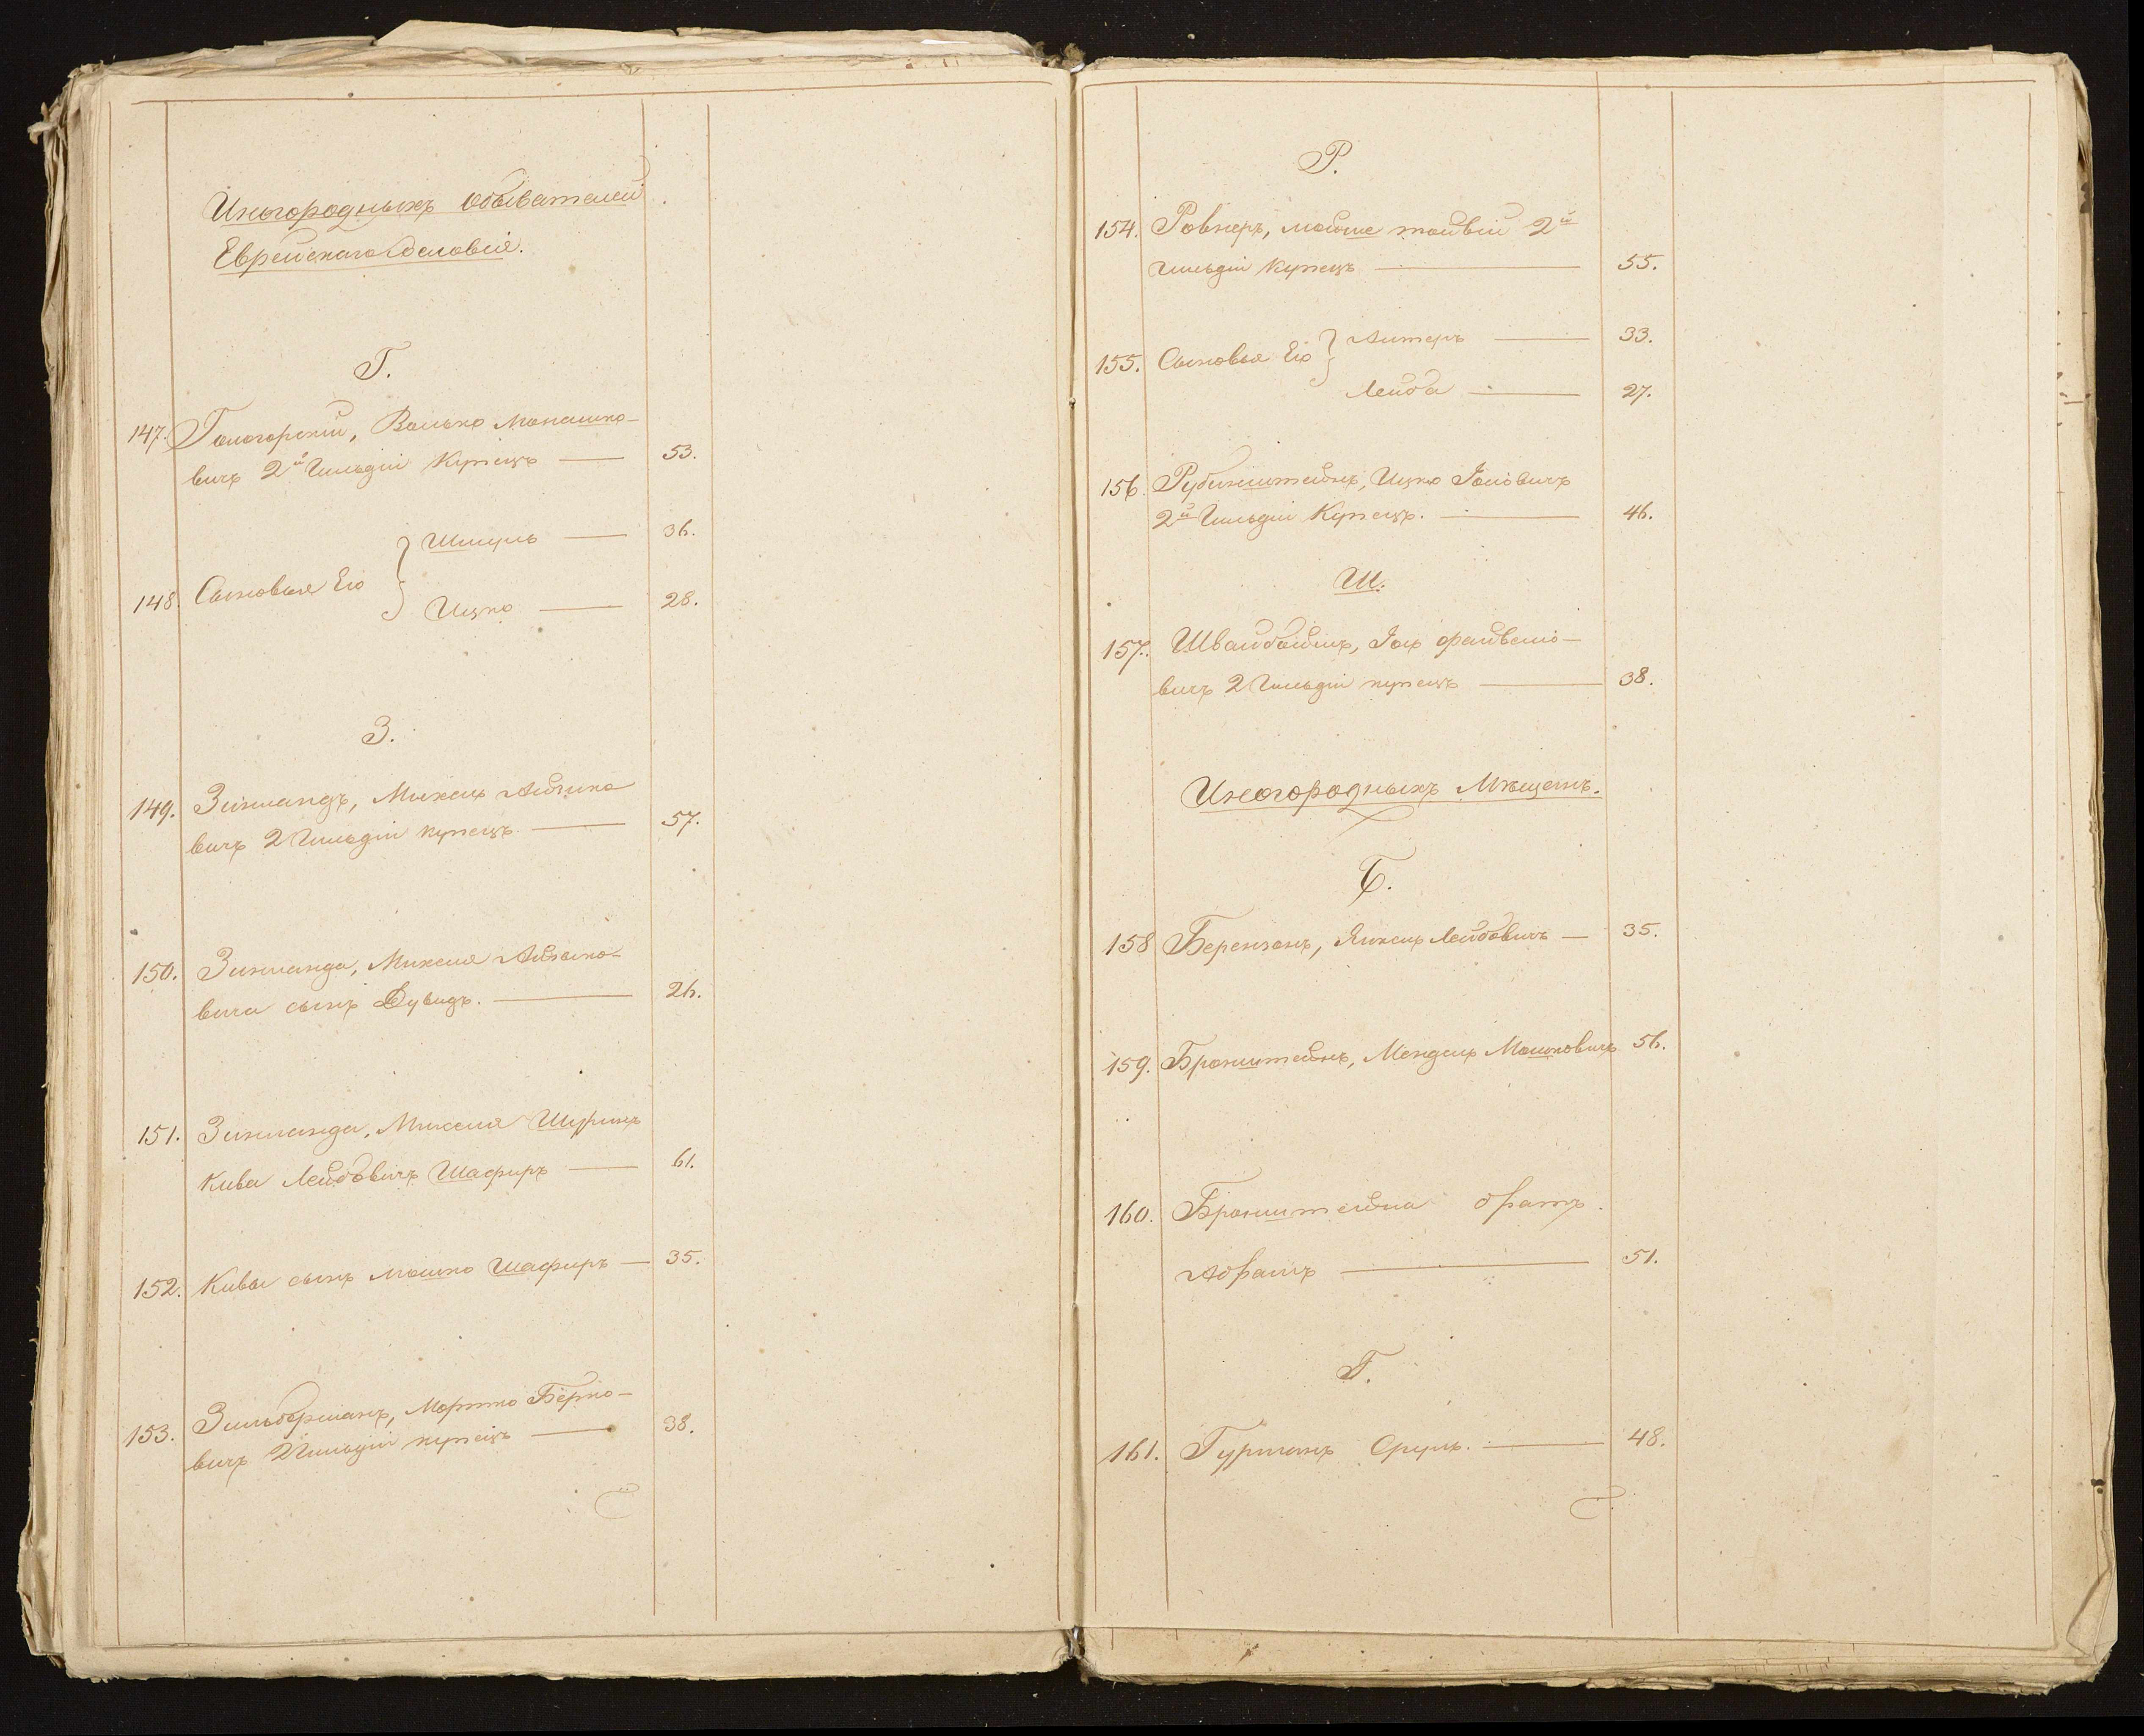 Иногородныхъ Обывателей
Еврейскаго Сословія.
Г.
147. Гологорскій, Волько Монашко-
вичъ 2й Гильдіи Купецъ — 53.
Шмуль — 36.
148. Сыновья Его
Ицко — 28.
З.
149. Зинландъ, Михель Айзико
вичъ 2 Гильдіи купецъ — 57.
150. Зинланда, Михеля Айзико-
вича сынъ Дувидъ. — 26.
151. Зинланда, Михеля Шуринъ
Кива Лейбовичъ Шафиръ — 61.
152. Кивы сынъ Мошко Шафиръ — 35.
153. Зильберманъ, Мортко Берко-
вичъ 2 Гильдіи купецъ — 38.
Р.
154. Ровнеръ, Мойше 2й
гильдіи Купецъ — 55.
Алтеръ — 33.
155. Сыновья Его
Лейба — 27.
156. Рубинштейнъ, Ицко Іосіовичъ
2й Гильдіи Купецъ. — 46.
Ш.
157. Швайбоймъ, Файвелю-
вичъ 2 Гильдіи купецъ — 38.
Иногородныхъ Мѣщанъ.
Б.
158 Березонъ, Лейбовичъ — 35.
159. Бронштейнъ, Мендель Мошковичъ 56.
160. Бронштейна братъ.
Абрамъ — 51.
Г.
161. Гурманъ Сруль. — 48.